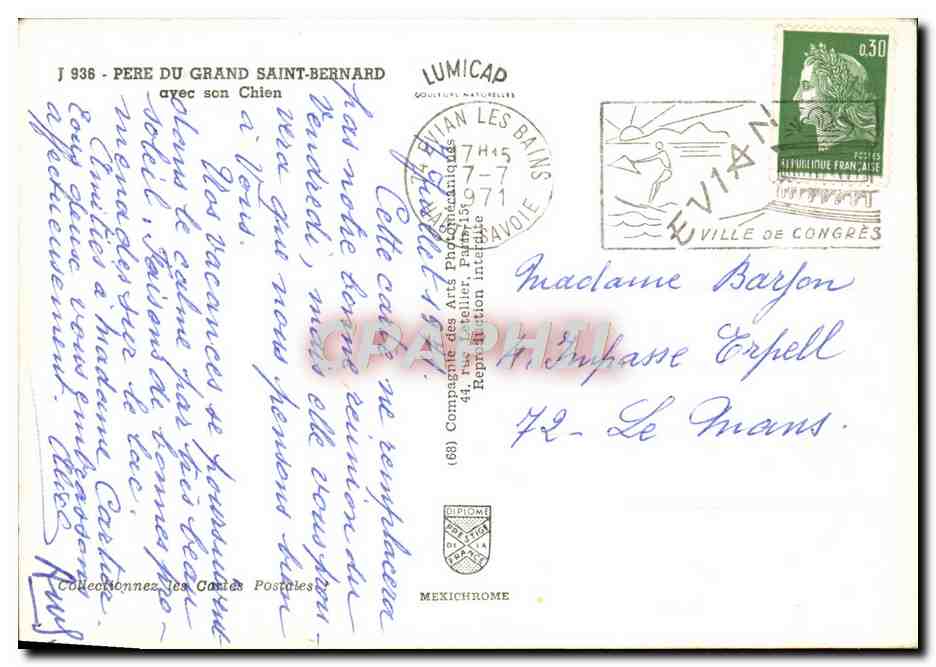 J 936 - PERE DU GRAND SAINT-BERNARD
avec son Chien
LUMICAP
COULEURS NATURELLES
74 EVIAN LES BAINS
17H15
7-7
1971
HAUTE SAVOIE
EVIAN
VILLE DE CONGRÈS
0,30
POSTES
REPUBLIQUE FRANÇAISE
7 Juillet 1971.
Cette carte ne remplacera
pas notre bonne réunion du
Vendredi, mais elle vous prou-
vera que nous pensons bien
à Vous.
Nos vacances se poursuivent
dans le calme par très beau
soleil. Faisons de bonnes pro-
menades sur le lac.
Amitiés à Madame Cartier
Tous deux vous embrassons
affectueusement.
(68) Compagnie des Arts Photomécaniques
44, rue Letellier, Paris-15e
Reproduction interdite
Madame Barjon
4. Impasse Erpell
72 - Le Mans.
CPAPHIL
DIPLOME
PRESTIGE
DE LA
FRANCE
MEXICHROME
Collectionnez les Cartes Postales